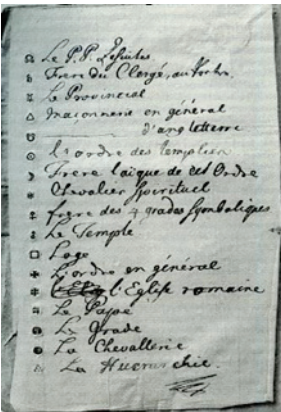 ☊ Le P.P. Jesuites
♄ Frere du Clergé, ou
♉ Le Provincial
△ maçonnerie en général
♉ d'angleterre
☉ l'ordre des templiers
☽ Frere laïque de cet Ordre
Chevalier Spirituel
frere des 4 grades Symboliques
Le Temple
□ Loge
L'ordre en général
l'Eglise romaine
Le Pape
Le Grade
La Chevallerie
La Hierarchie.